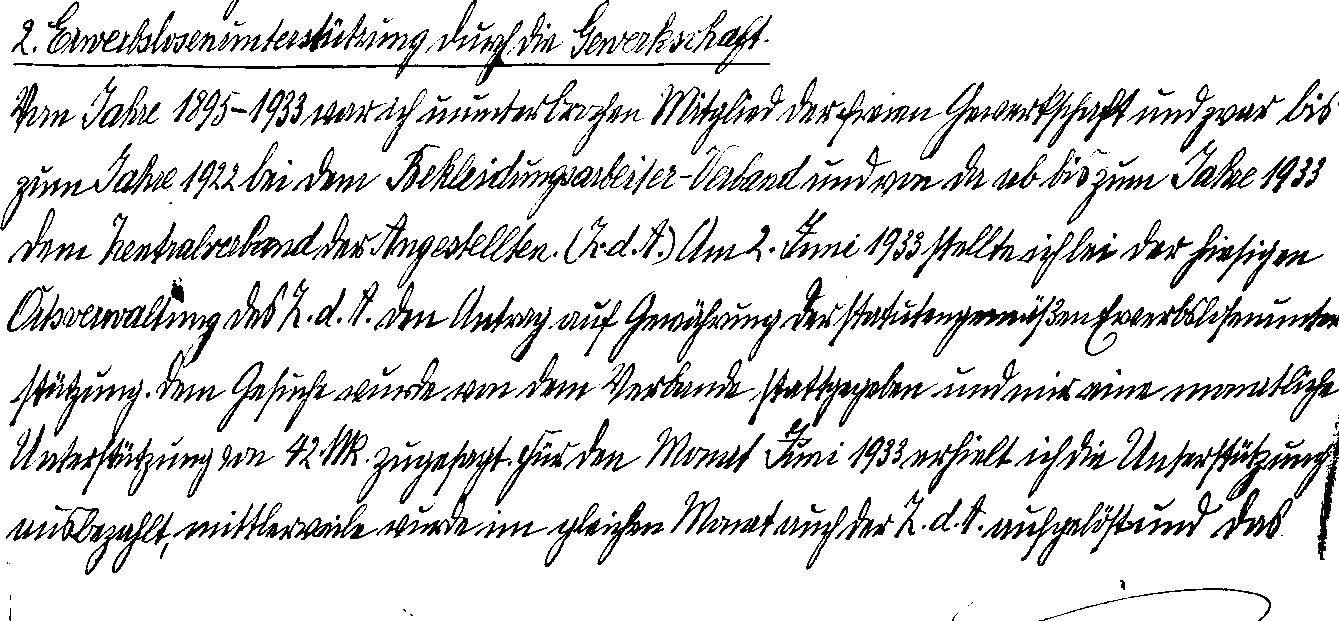 2. Erwerbslosenunterstützung durch die Gewerkschaft.
Vom Jahre 1895-1933 war ich ununterbrochen Mitglied der freien Gewerkschaft und zwar bis
zum Jahre 1922 bei dem Bekleidungsarbeiter-Verband und von da ab bis zum Jahre 1933
dem Zentralverband der Angestellten. (Z.d.A.) Am 2. Juni 1933 stellte ich bei der hiesigen
Ortsverwaltung des Z.d.A. den Antrag auf Gewährung der statutengemäßen Erwerbslosenunter
stützung. Dem Gesuche wurde von dem Verbande stattgegeben und mir eine monatliche
Unterstützung von 42 Mk. zugesagt. Für den Monat Juni 1933 erhielt ich die Unterstützung
ausbezahlt, mittlerweile wurde im gleichen Monat auch der Z.d.A. aufgelöst und das